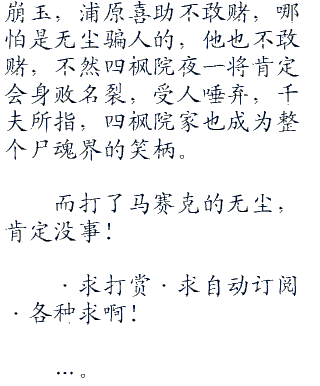 崩玉，浦原喜助不敢赌，哪
怕是无尘骗人的，他也不敢
赌，不然四枫院夜一将肯定
会身败名裂，受人唾弃，千
夫所指，四枫院家也成为整
个尸魂界的笑柄。
而打了马赛克的无尘，
肯定没事！
·求打赏·求自动订阅
·各种求啊！
…。